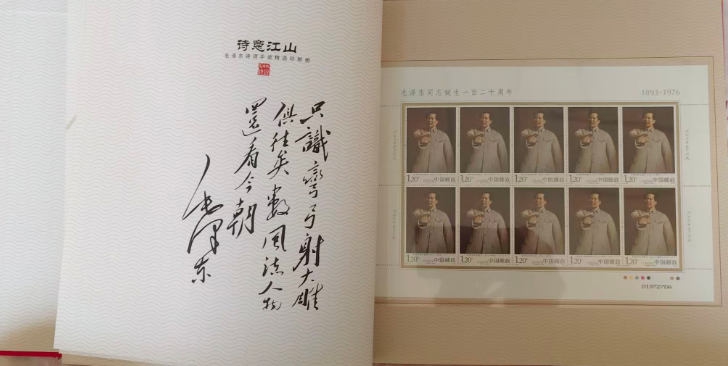 诗意江山
只識彎弓射大雕
俱往矣數風流人物
還看今朝
毛澤东
毛泽东同志诞生一百二十周年
1893-1976
1.20 中国邮政
1.20 中国邮政
1.20 中国邮政
1.20 中国邮政
1.20 中国邮政
1.20 中国邮政
1.20 中国邮政
1.20 中国邮政
1.20 中国邮政
1.20 中国邮政